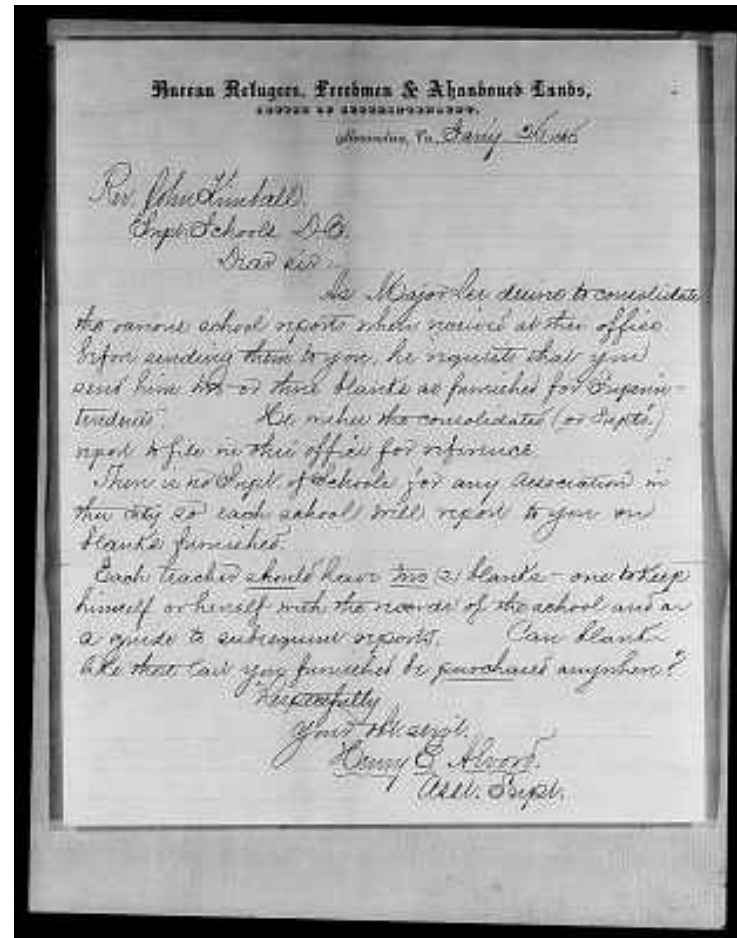 Bureau Refugees, Freedmen & Abandoned Lands,
OFFICE OF SUPERINTENDENT,
Alexandria, Va., Jan'y
Rev. John Kimball.
Supt. Schools D.C.
Dear sir
As Major Lee desires to consolidate
the various school reports when received at this office
before sending them to you, he requests that you
send him two or three blanks as furnished for Superin-
tendents. He wishes the consolidated (or Supt's.)
report to file in this office for reference.
There is no Supt. of Schools for any Association in
this city so each school will report to you on
blanks furnished.
Each teacher should have two (2) blanks - one to keep
himself or herself with the records of the school and as
a guide to subsequent reports. Can blanks
like those last you furnished be purchased anywhere?
Respectfully
Your obt. servt.
Henry E. Alvord.
Asst. Supt.